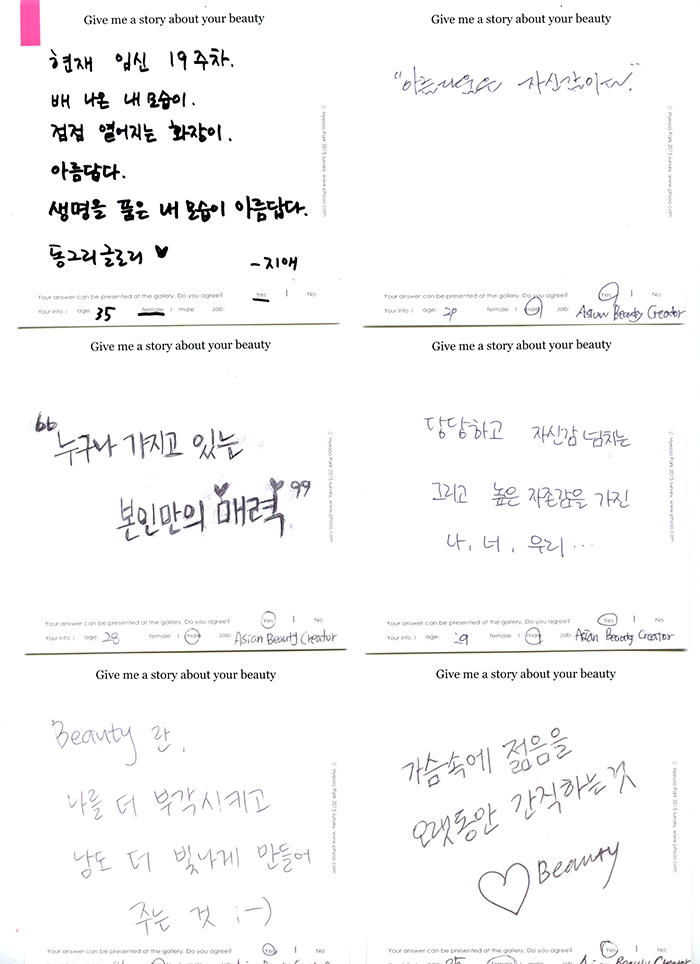 Give me a story about your beauty
현재 임신 19주차.
배 나온 내 모습이.
점점 옅어지는 화장이.
아름답다.
생명을 품은 내 모습이 아름답다.
동그리글로리 ♥
-지애
© Hyesoo Park 2015 survey. www.phooo.com
Your answer can be presented at the gallery. Do you agree? Yes I No
Your info I age: 35 female I male Job:
Give me a story about your beauty
"아름다움은 자신감이다."
© Hyesoo Park 2015 survey. www.phooo.com
Your answer can be presented at the gallery. Do you agree? Yes I No
Your info I age: female I male Job: Asian Beauty Creator
Give me a story about your beauty
"누구나 가지고 있는
본인만의 매력"
© Hyesoo Park 2015 survey. www.phooo.com
Your answer can be presented at the gallery. Do you agree? Yes I No
Your info I age: 28 female I male Job: Asian Beauty Creator
Give me a story about your beauty
당당하고 자신감 넘치는
그리고 높은 자존감을 가진
나, 너, 우리...
© Hyesoo Park 2015 survey. www.phooo.com
Your answer can be presented at the gallery. Do you agree? Yes I No
Your info I age: female I male Job: Asian Beauty Creator
Give me a story about your beauty
Beauty 란,
나를 더 부각시키고
남도 더 빛나게 만들어
주는 것 ;-)
© Hyesoo Park 2015 survey. www.phooo.com
Your answer can be presented at the gallery. Do you agree? Yes I No
Give me a story about your beauty
가슴속에 젊음을
오랫동안 간직하는것
♡ Beauty
© Hyesoo Park 2015 survey. www.phooo.com
Your answer can be presented at the gallery. Do you agree? Yes I No